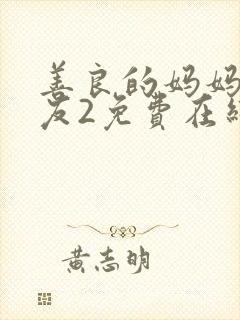 善良的妈妈
友2免費在
黄志明